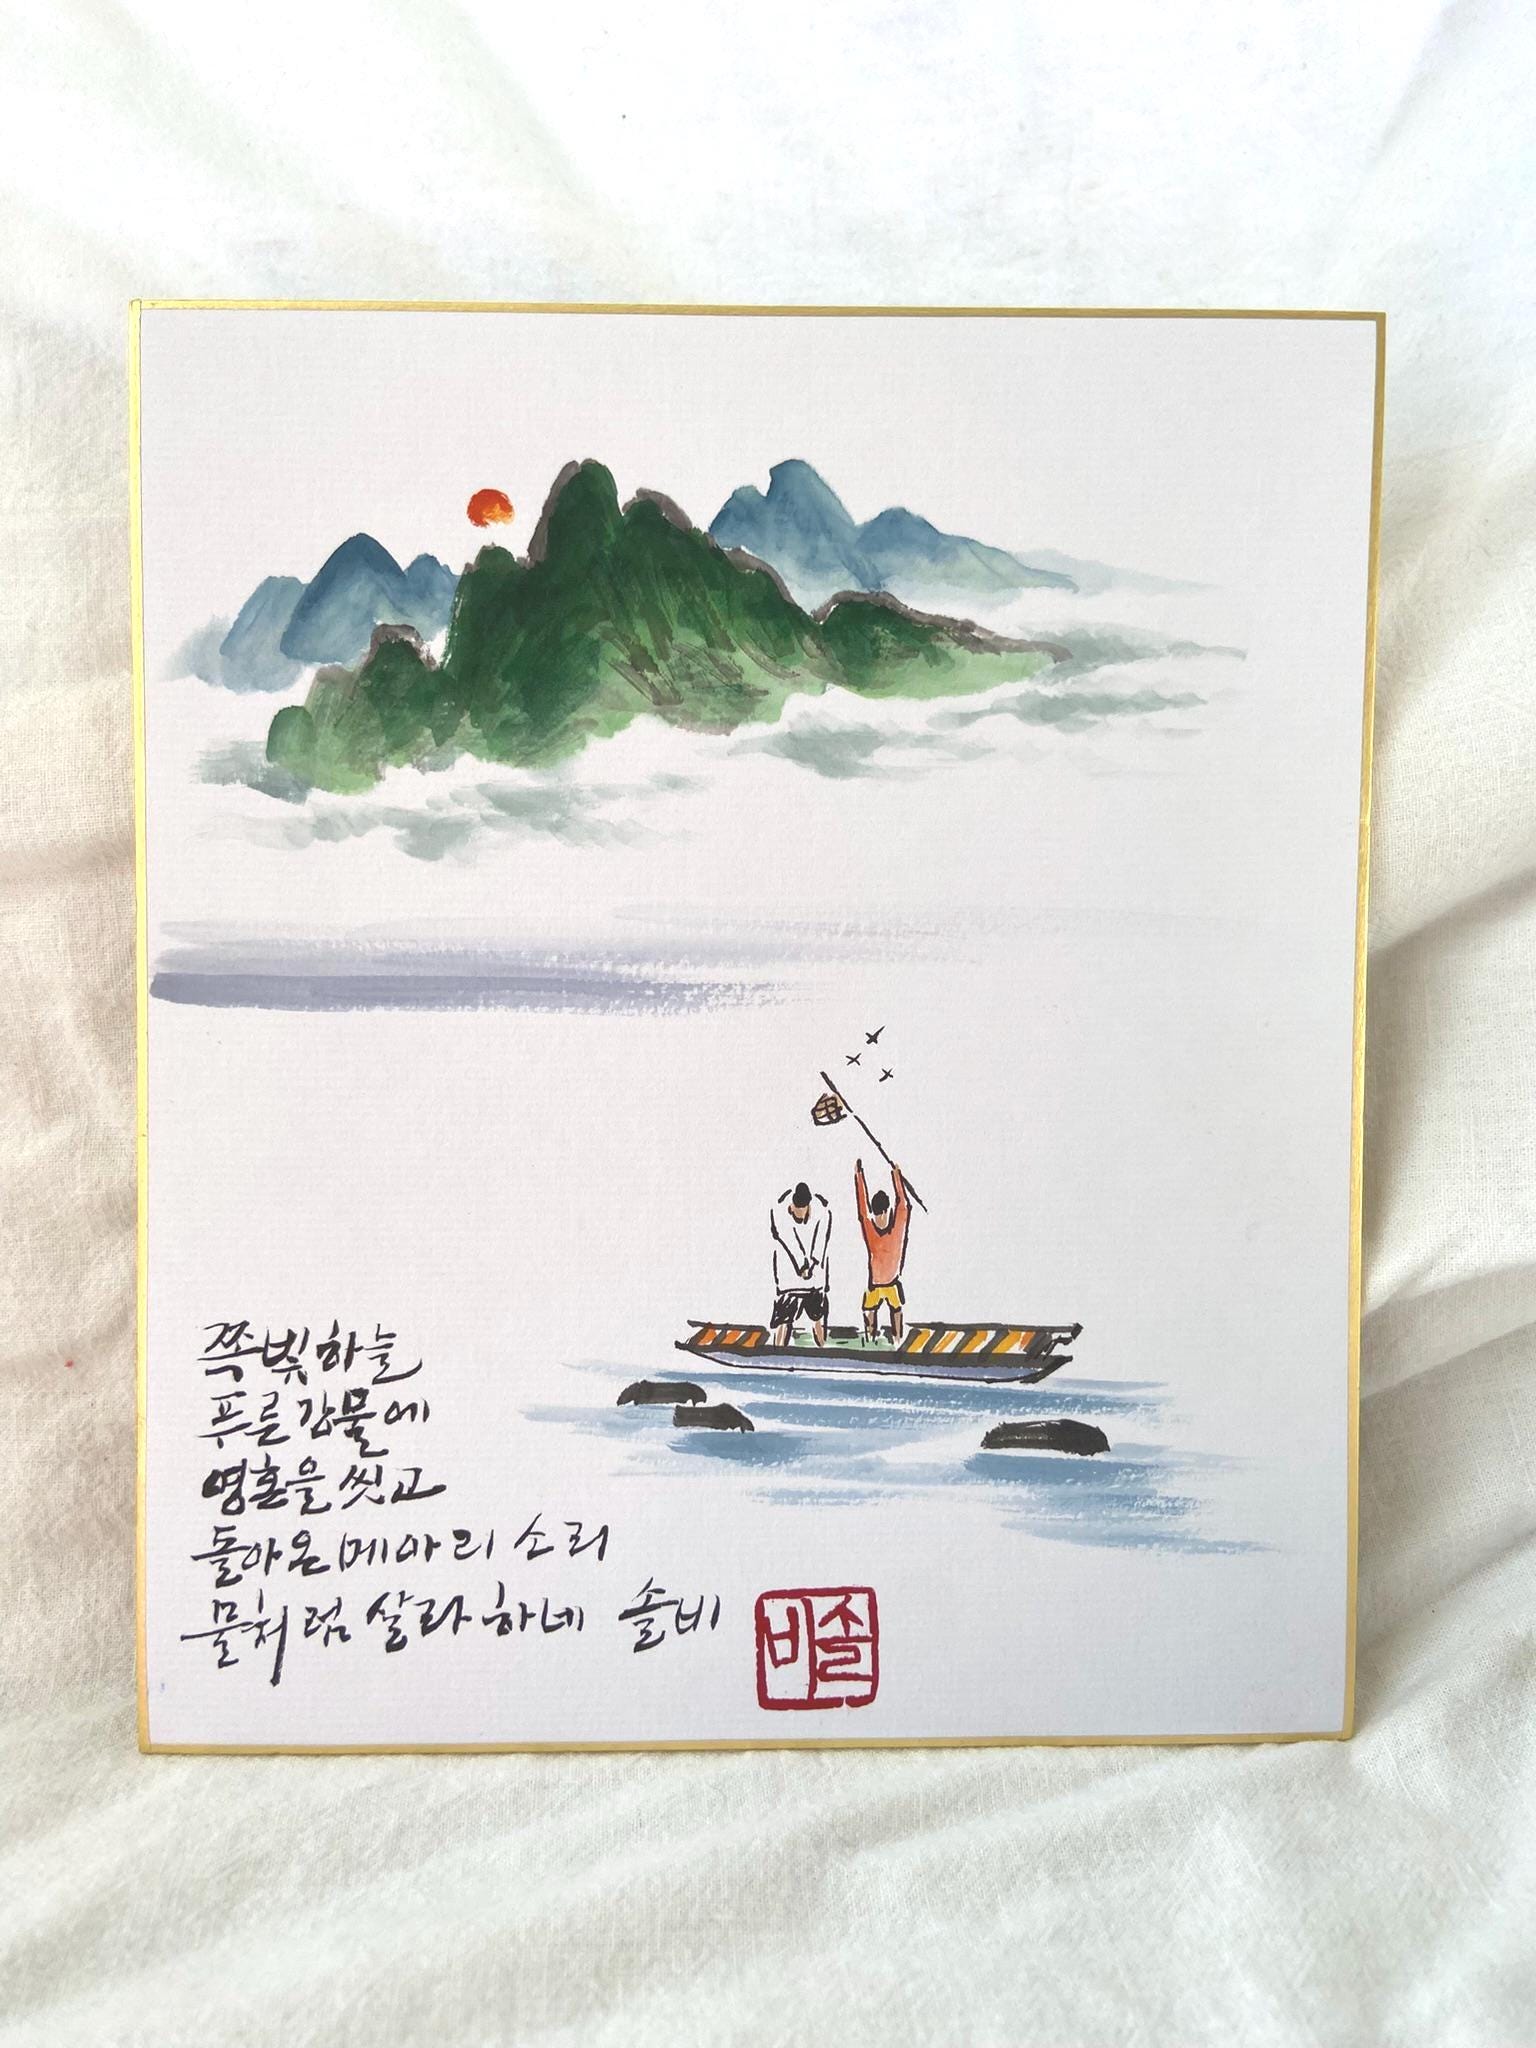 쪽빛하늘
푸른강물에
영혼을 씻고
돌아온 메아리 소리
물처럼 살라하네 솔비
솔비